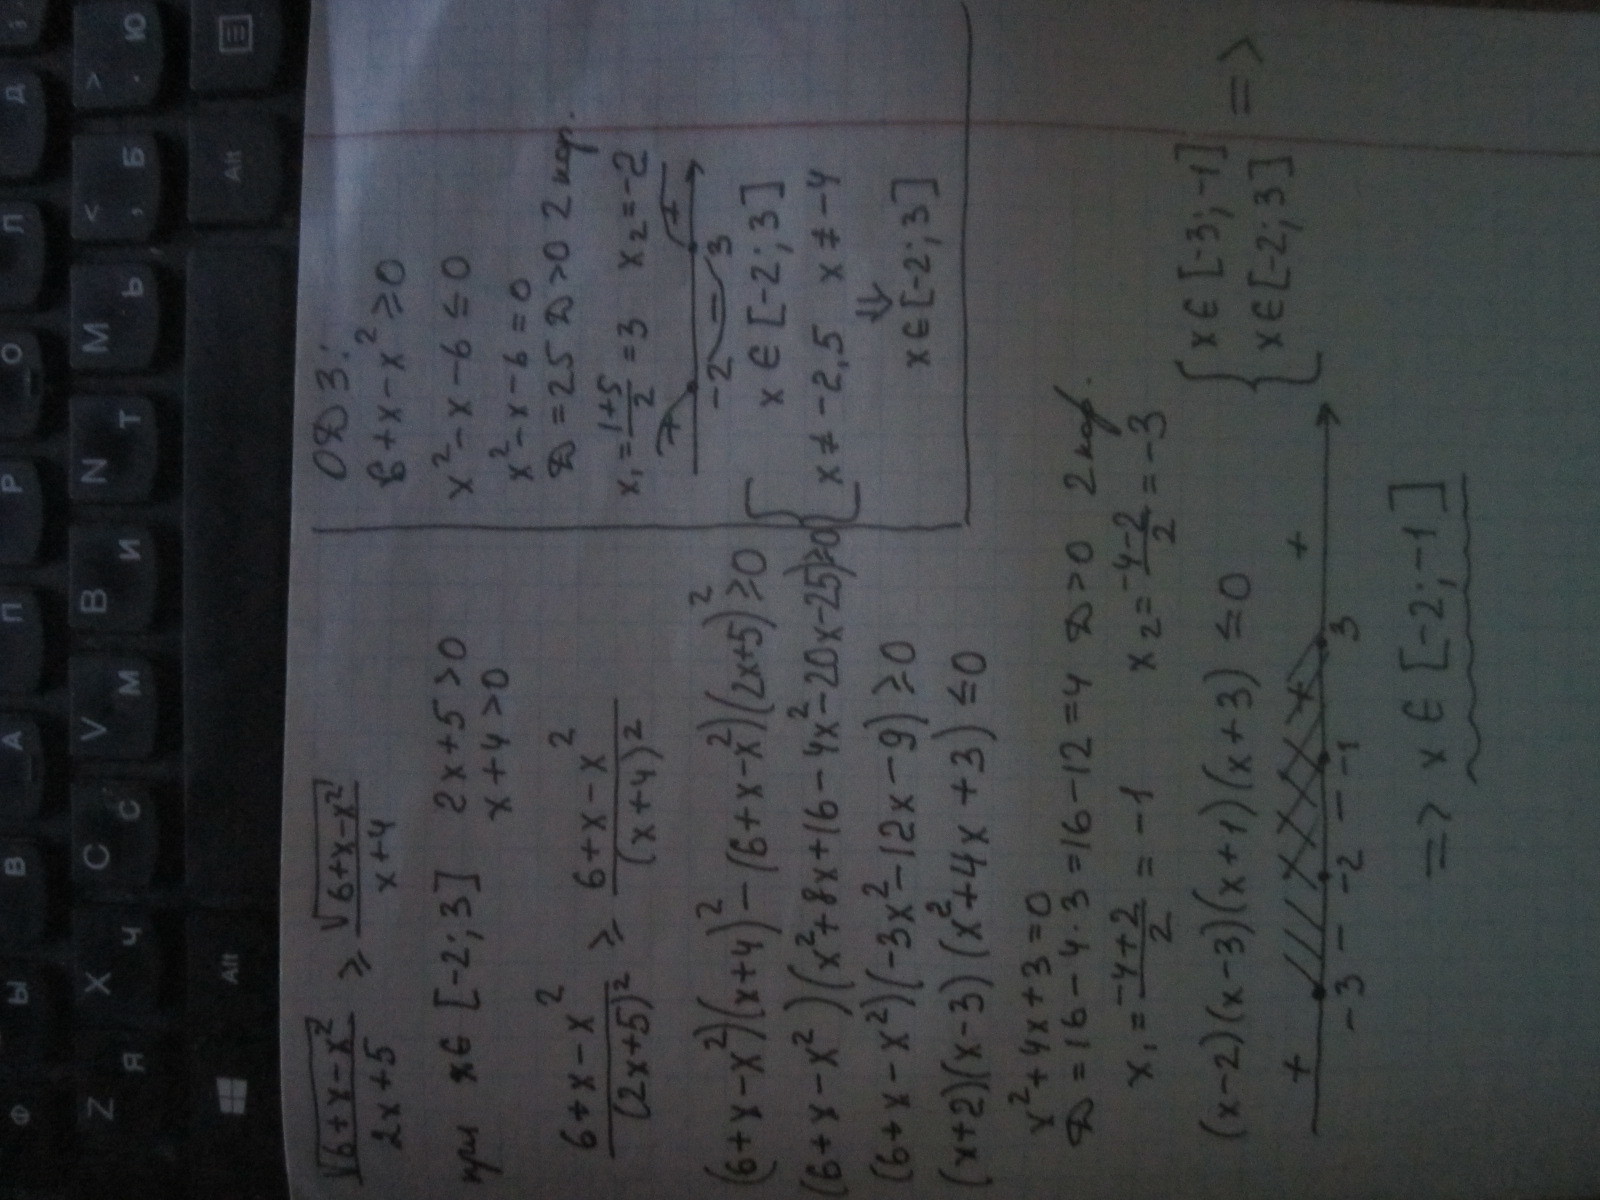 √(6+x-x²)/(2x+5) ≥ √(6+x-x²)/(x+4)
при x∈[-2;3] 2x+5>0
x+4>0
(6+x-x²)/(2x+5)² ≥ (6+x-x²)/(x+4)²
(6+x-x²)(x+4)²-(6+x-x²)(2x+5)²≥0
(6+x-x²)(x²+8x+16-4x²-20x-25)≥0
(6+x-x²)(-3x²-12x-9)≥0
(x+2)(x-3)(x²+4x+3)≤0
x²+4x+3=0
D=16-4·3=16-12=4 D>0 2 кор.
x₁=(-4+2)/2=-1 x₂=(-4-2)/2=-3
(x-2)(x-3)(x+1)(x+3)≤0
+ - - + +
-3 -2 -1 3
{ x∈[-3;-1]
x∈[-2;3] =>
=> x∈[-2;-1]
ОДЗ:
6+x-x²≥0
x²-x-6≤0
x²-x-6=0
D=25 D>0 2 кор.
x₁=(1+5)/2=3 x₂=-2
+ - +
-2 3
{ x∈[-2;3]
x≠-2,5 x≠-4
⇓
x∈[-2;3]
Ф Ы В А П Р О Л Д
Z Я X Ч C С V М B И N Т M Ь < , Б > . Ю
Alt Alt